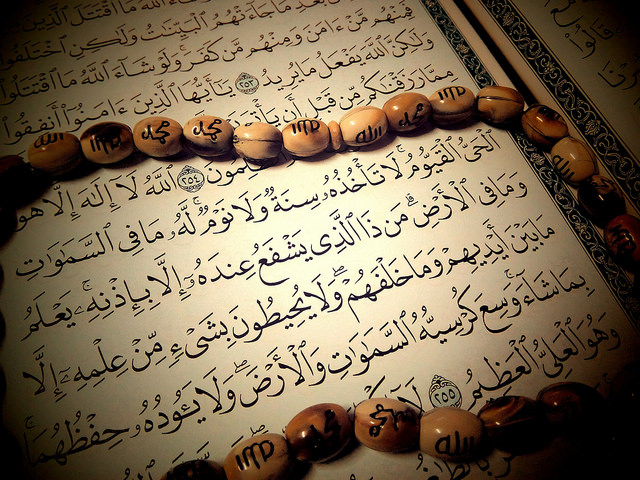 ٱقْتَتَلَ ٱلَّذِينَ
بَعْدِ مَا جَآءَتْهُمُ ٱلْبَيِّنَـٰتُ وَلَـٰكِنِ ٱخْتَلَفُوا۟
فَمِنْهُم مَّنْ ءَامَنَ وَمِنْهُم مَّن كَفَرَ ۚ وَلَوْ شَآءَ ٱللَّهُ مَا ٱقْتَتَلُوا۟
وَلَـٰكِنَّ ٱللَّهَ يَفْعَلُ مَا يُرِيدُ ٢٥٣ يَـٰٓأَيُّهَا ٱلَّذِينَ ءَامَنُوٓا۟ أَنفِقُوا۟
مِمَّا رَزَقْنَـٰكُم مِّن قَبْلِ أَن يَأْتِىَ
٢٥٤ ٱللَّهُ لَآ إِلَـٰهَ إِلَّا هُوَ
ٱلْحَىُّ ٱلْقَيُّومُ ۚ لَا تَأْخُذُهُۥ سِنَةٌ وَلَا نَوْمٌ ۚ لَّهُۥ مَا فِى ٱلسَّمَـٰوَٰتِ
وَمَا فِى ٱلْأَرْضِ ۗ مَن ذَا ٱلَّذِى يَشْفَعُ عِندَهُۥٓ إِلَّا بِإِذْنِهِۦ ۚ يَعْلَمُ
مَا بَيْنَ أَيْدِيهِمْ وَمَا خَلْفَهُمْ ۖ وَلَا يُحِيطُونَ بِشَىْءٍ مِّنْ عِلْمِهِۦٓ إِلَّا
بِمَا شَآءَ ۚ وَسِعَ كُرْسِيُّهُ ٱلسَّمَـٰوَٰتِ وَٱلْأَرْضَ ۖ وَلَا يَـُٔودُهُۥ حِفْظُهُمَا ۚ
وَهُوَ ٱلْعَلِىُّ ٱلْعَظِيمُ ٢٥٥ لَآ
قَالُوا۟
الله
محمد
محمد
الله
محمد
الله
محمد
محمد
الله